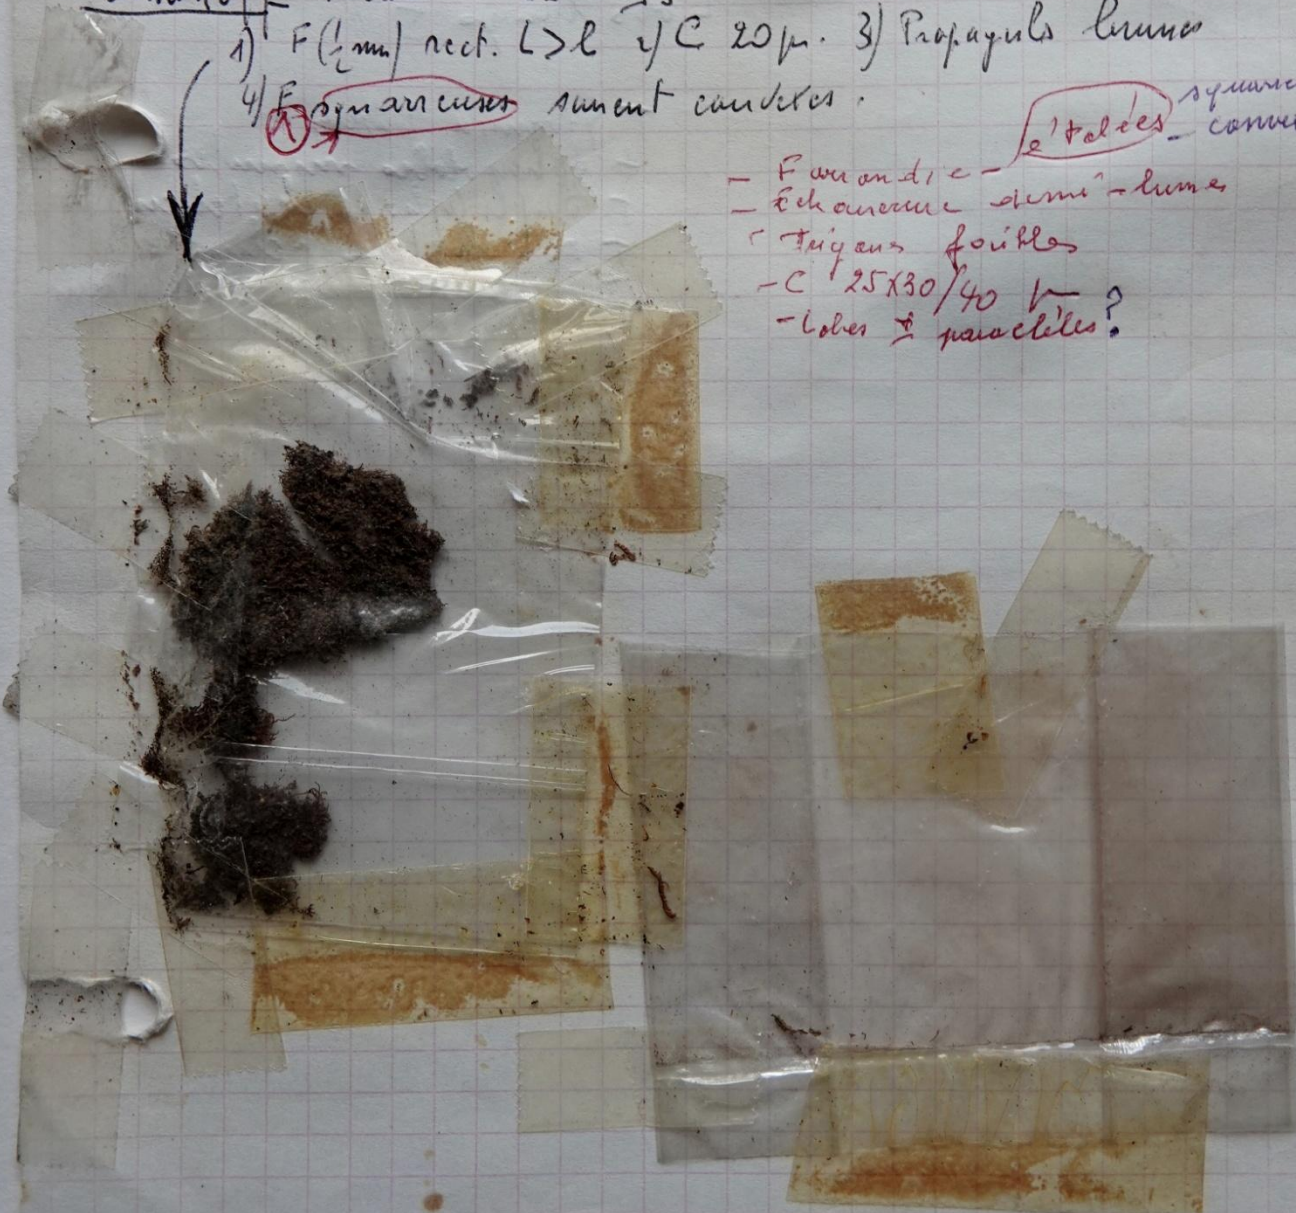 1) F (1/2 mm) rect. L>l 2) C 20 µ. 3) Propagules brunes
4) F squarreuses souvent condutes.
1
étalées squarr
- conve
- F arrondie -
- Echancrure demi-lunes
- Trigones faibles
- C 25x30/40 µ
- Lobes ± parallèles?